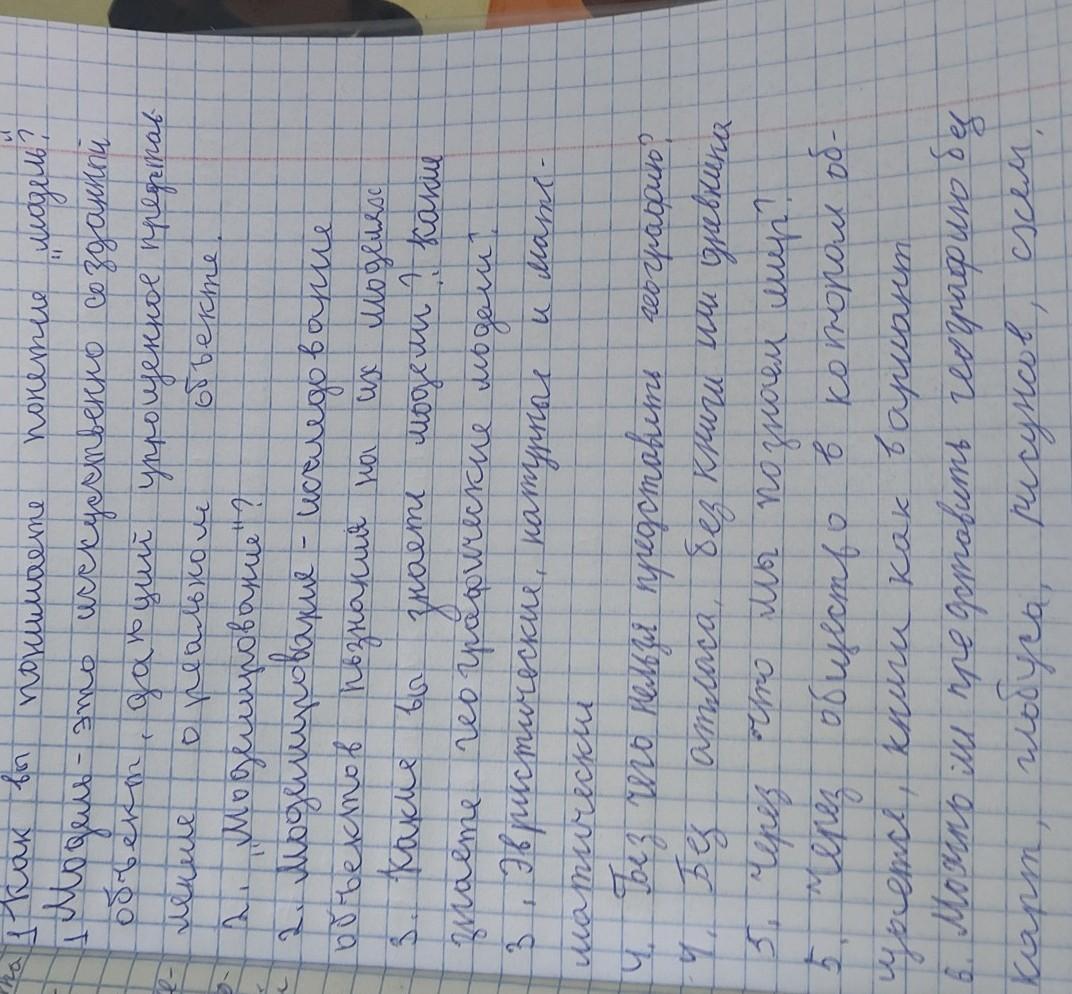 1 Как вы понимаете понетие "модель"?
1 Модель - это исскуственно созданый
объект, дающий упрощенное представ
ление о реальном объекте.
2. "Моделирование"?
2. Моделирование - исследование
объектов познания на их моделях
3. Какие вы знаете модели? Какие
знаете географические модели?
3. Эвристические, натурные и мате-
матически
4. Без чего нельзя представить географию?
4. Без атласа, без книги или дневника
5. Через что мы познаем мир?
5. Через общество в котором об-
щяется, книги как вариант
6. Можно ли представить географию без
карт, глобуса, рисунков, схем,